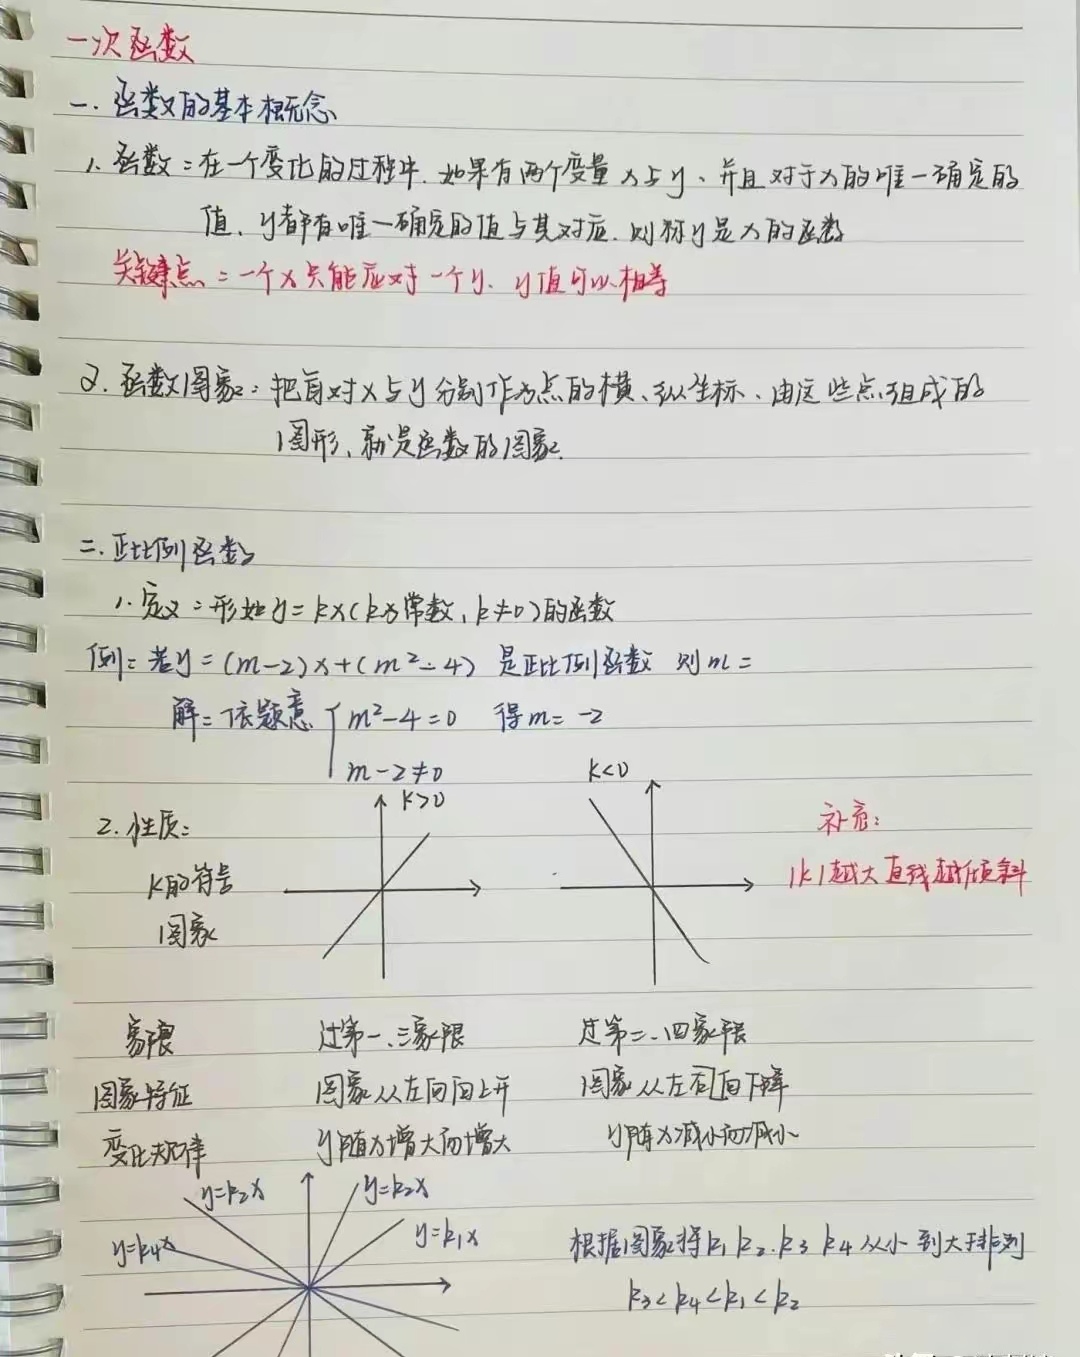 一次函数
一. 函数的基本概念
1. 函数:在一个变化的过程中.如果有两个变量x与y、并且对于x的唯一确定的
值、y都有唯一确定的值与其对应.则称y是x的函数
关键点:一个x只能应对一个y、y值可以相等
2. 函数图象:把每对x与y分别作为点的横、纵坐标、由这些点组成的
图形、就是函数的图象.
二. 正比例函数
1. 定义:形如y=kx(k为常数,k≠0)的函数
例:若y=(m-2)x+(m²-4) 是正比例函数 则m=
解:依题意 { m²-4=0 得m=-2
m-2≠0
k>0 k<0
2. 性质:
补充:
k的符号
|k|越大直线越倾斜
图象
象限 过第一、三象限 过第二、四象限
图象特征 图象从左向向上升 图象从左右向下降
变化规律 y随x增大而增大 y随x减小而减小
y=k₂x y=k₂x
y=k₄x y=k₁x
根据图象将k₁ k₂.k₃ k₄从小到大排列
k₃<k₄<k₁<k₂